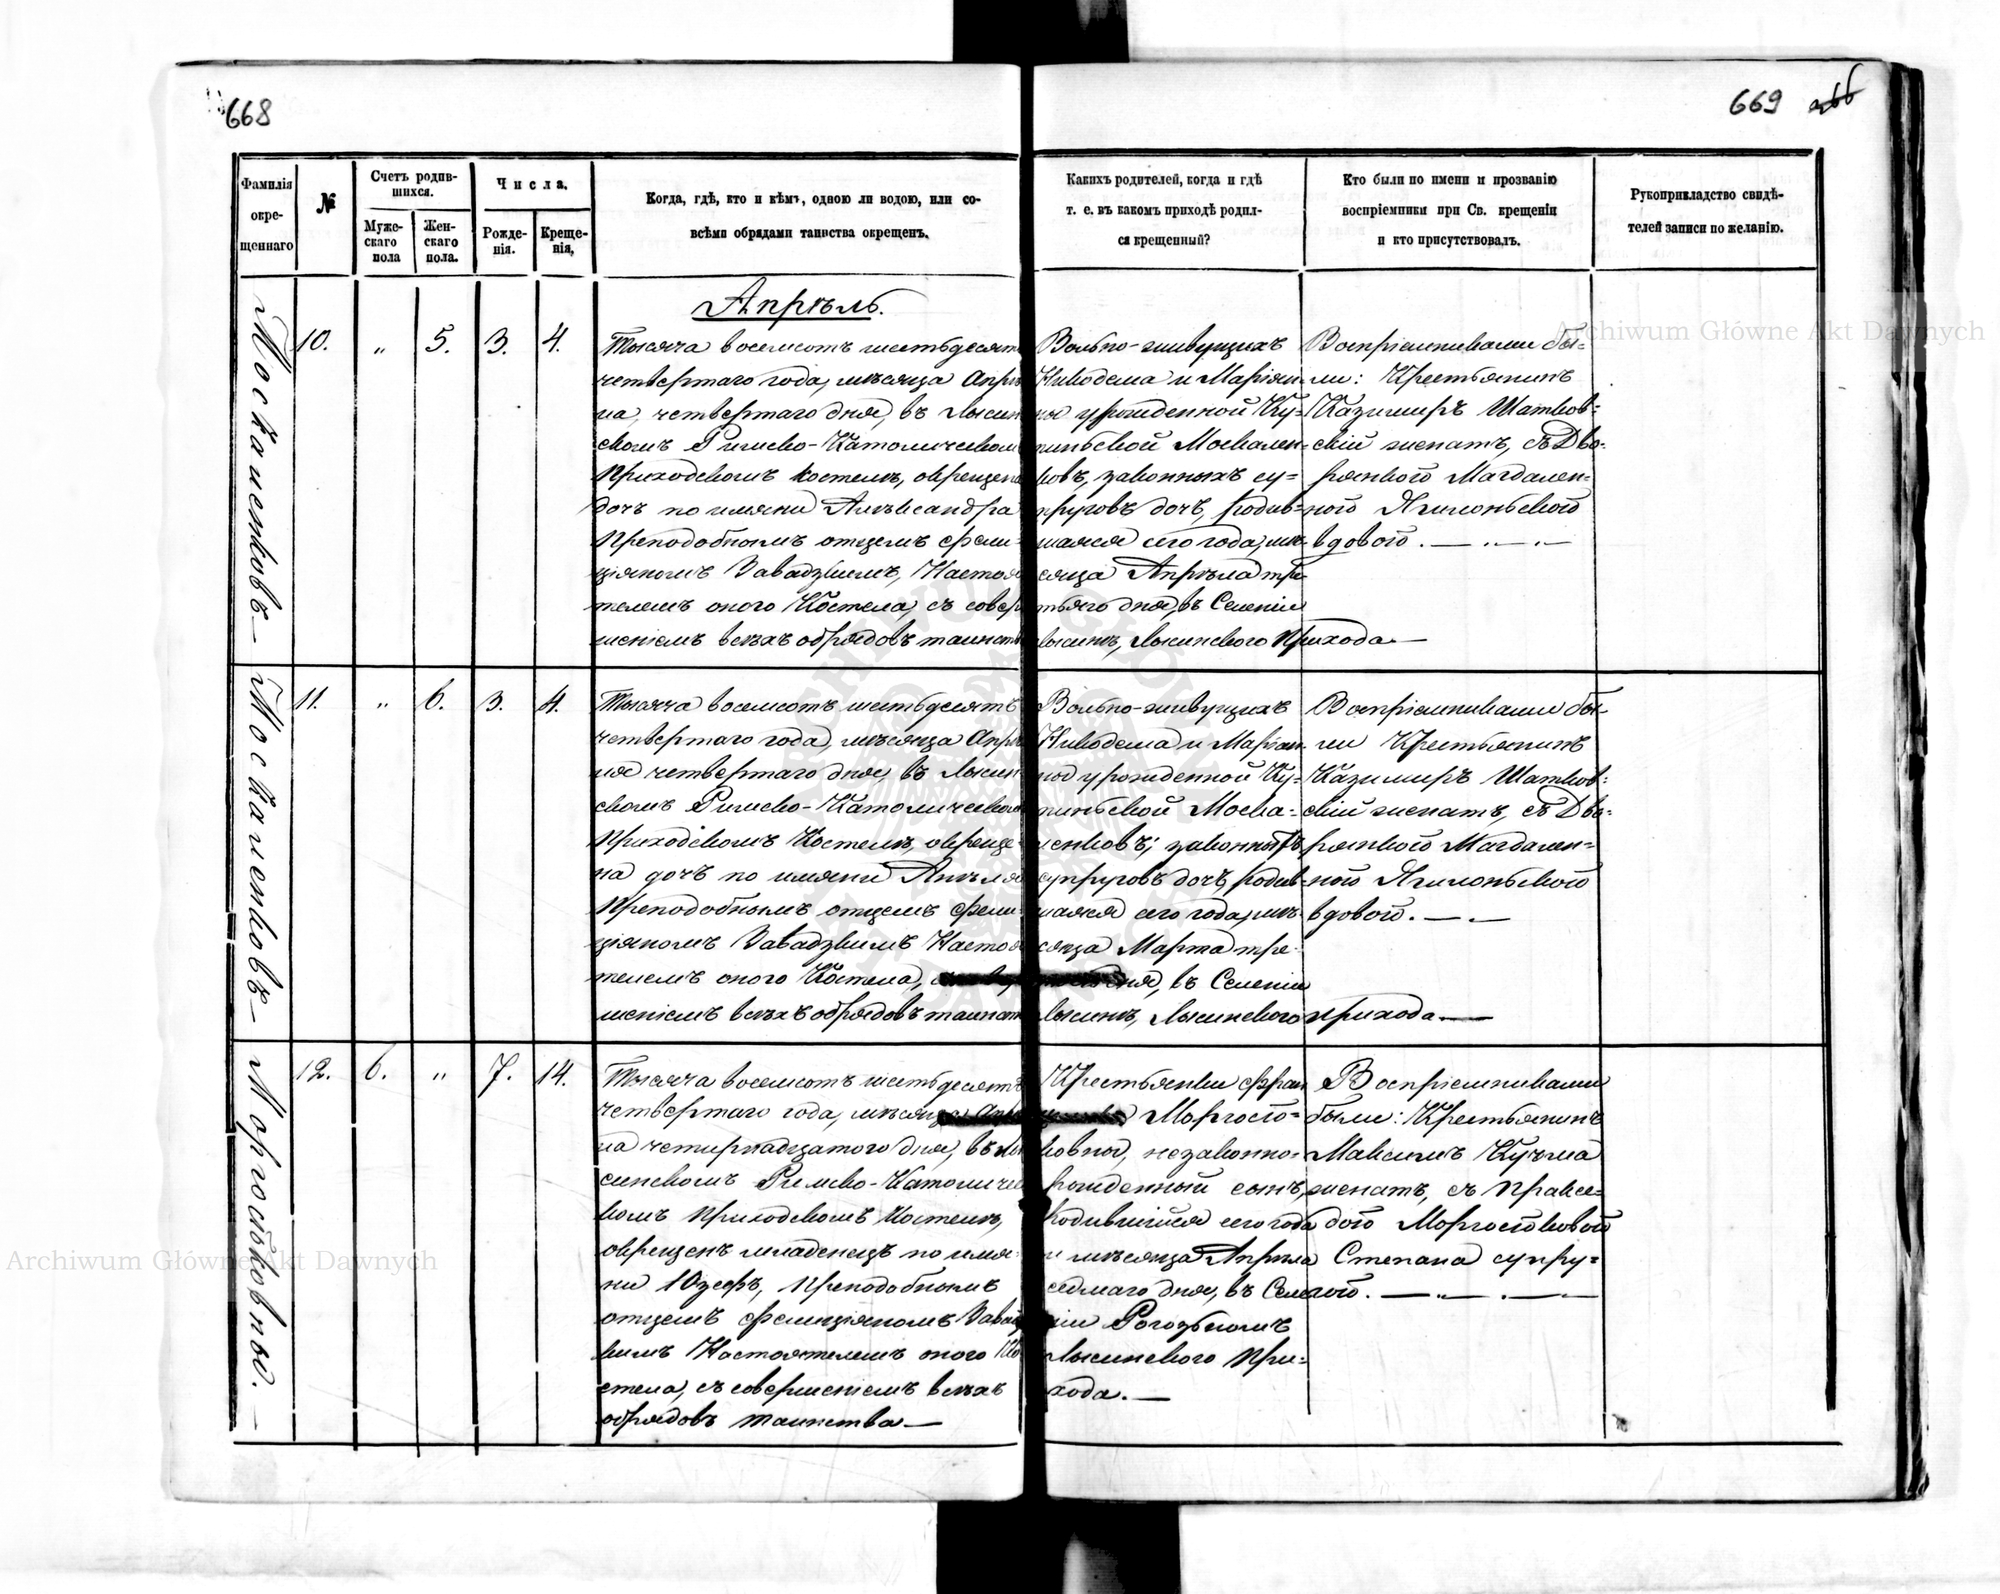 668
669 266
Фамилія окре-щеннаго
№
Счетъ родив-шихся.
Муже-скаго пола
Жен-скаго пола.
Числа.
Рожде-нія.
Креще-нія,
Когда, гдѣ, кто и кѣмъ, одною ли водою, или со-
всѣми обрядами таинства окрещенъ.
Какихъ родителей, когда и гдѣ
т. е. въ какомъ приходѣ родил-
ся крещенный?
Кто были по имени и прозванію
воспріемники при Св. крещеніи
и кто присутствовалъ.
Рукоприкладство свидѣ-
телей записи по желанію.
Апрѣль.
Москаленковъ
10. „ 5. 3. 4.
Тысяча восемсотъ шестьдесятъ
четвертаго года, мѣсяца Апрѣ
ла, четвертаго дня, въ Лысин
скомъ Римско-Католическом
Приходскомъ костелѣ, окрещена
дочь по имяни Александра
Преподобнымъ отцемъ Фели-
ціяномъ Завадзкимъ, Настоя
телемъ оного Костела, съ совер
шеніемъ всѣхъ обрядовъ таинств
Вольно-живущихъ
Никодема и Маріян
ны урожденной Ку-
пинской Москален-
ковъ, законныхъ су-
пруговъ дочь, родив-
шаяся сего года, мѣ-
сяца Апрѣла тре
тьяго дня, въ Селеніи
Лысинѣ, Лысинского Прихода.
Воспріемниками бы-
ли: Крестьянинъ
Казимиръ Шатков-
скій женатъ, съ Дво-
рянкою Магдален-
ною Ягилоньскою
вдовою.
Москаленковъ
11. „ 6. 3. 4.
Тысяча восемсотъ шестьдесятъ
четвертаго года, мѣсяца Апрѣ
ля четвертаго дня, въ Лысин
скомъ Римско-Католическом
Приходскомъ Костелѣ, окреще-
на дочь по имяни Анѣля
Преподобнымъ отцемъ Фели-
ціяномъ Завадзкимъ Настоя
телемъ оного Костела,
шеніемъ всѣхъ обрядовъ таинст
Вольно-живущихъ
Никодема и Маріан
ны урожденной Ку-
пинской Моска-
ленковъ; законныхъ
супруговъ дочь, родив-
шаяся сего года, мѣ-
сяца Марта тре-
дня, въ Селеніи
Лысинѣ, Лысинского прихода
Воспріемниками бы-
ли Крестьянинъ
Казимиръ Шатков-
скій женатъ, съ Дво-
рянкою Магдален-
ною Ягилоньскою
вдовою.
12. 6. „ 7. 14.
Тысяча восемсотъ шестьдесятъ
четвертаго года, мѣсяца
ла четырнадцатого дня, въ Лы
синскомъ Римско-Католичес
комъ Приходскомъ Костелѣ,
окрещенъ младенецъ по имя-
ни Юзефъ, Преподобнымъ
отцемъ Фелиціяномъ Завадз
кимъ Настоятелемъ оного Ко
стела, съ совершеніемъ всѣхъ
обрядовъ таинства
Крестьянки Фран
ковны, незаконно-
рожденный сынъ,
родившійся сего года
мѣсяца Апрѣла
седмаго дня, въ Селе
ніи Рогозьномъ
Лысинского При-
хода.
Воспріемниками
были: Крестьянинъ
Максимъ Кузьма
женатъ, съ Праксе-
дою
Степана супру-
гой.
Archiwum Główne Akt Dawnych
Archiwum Główne Akt Dawnych